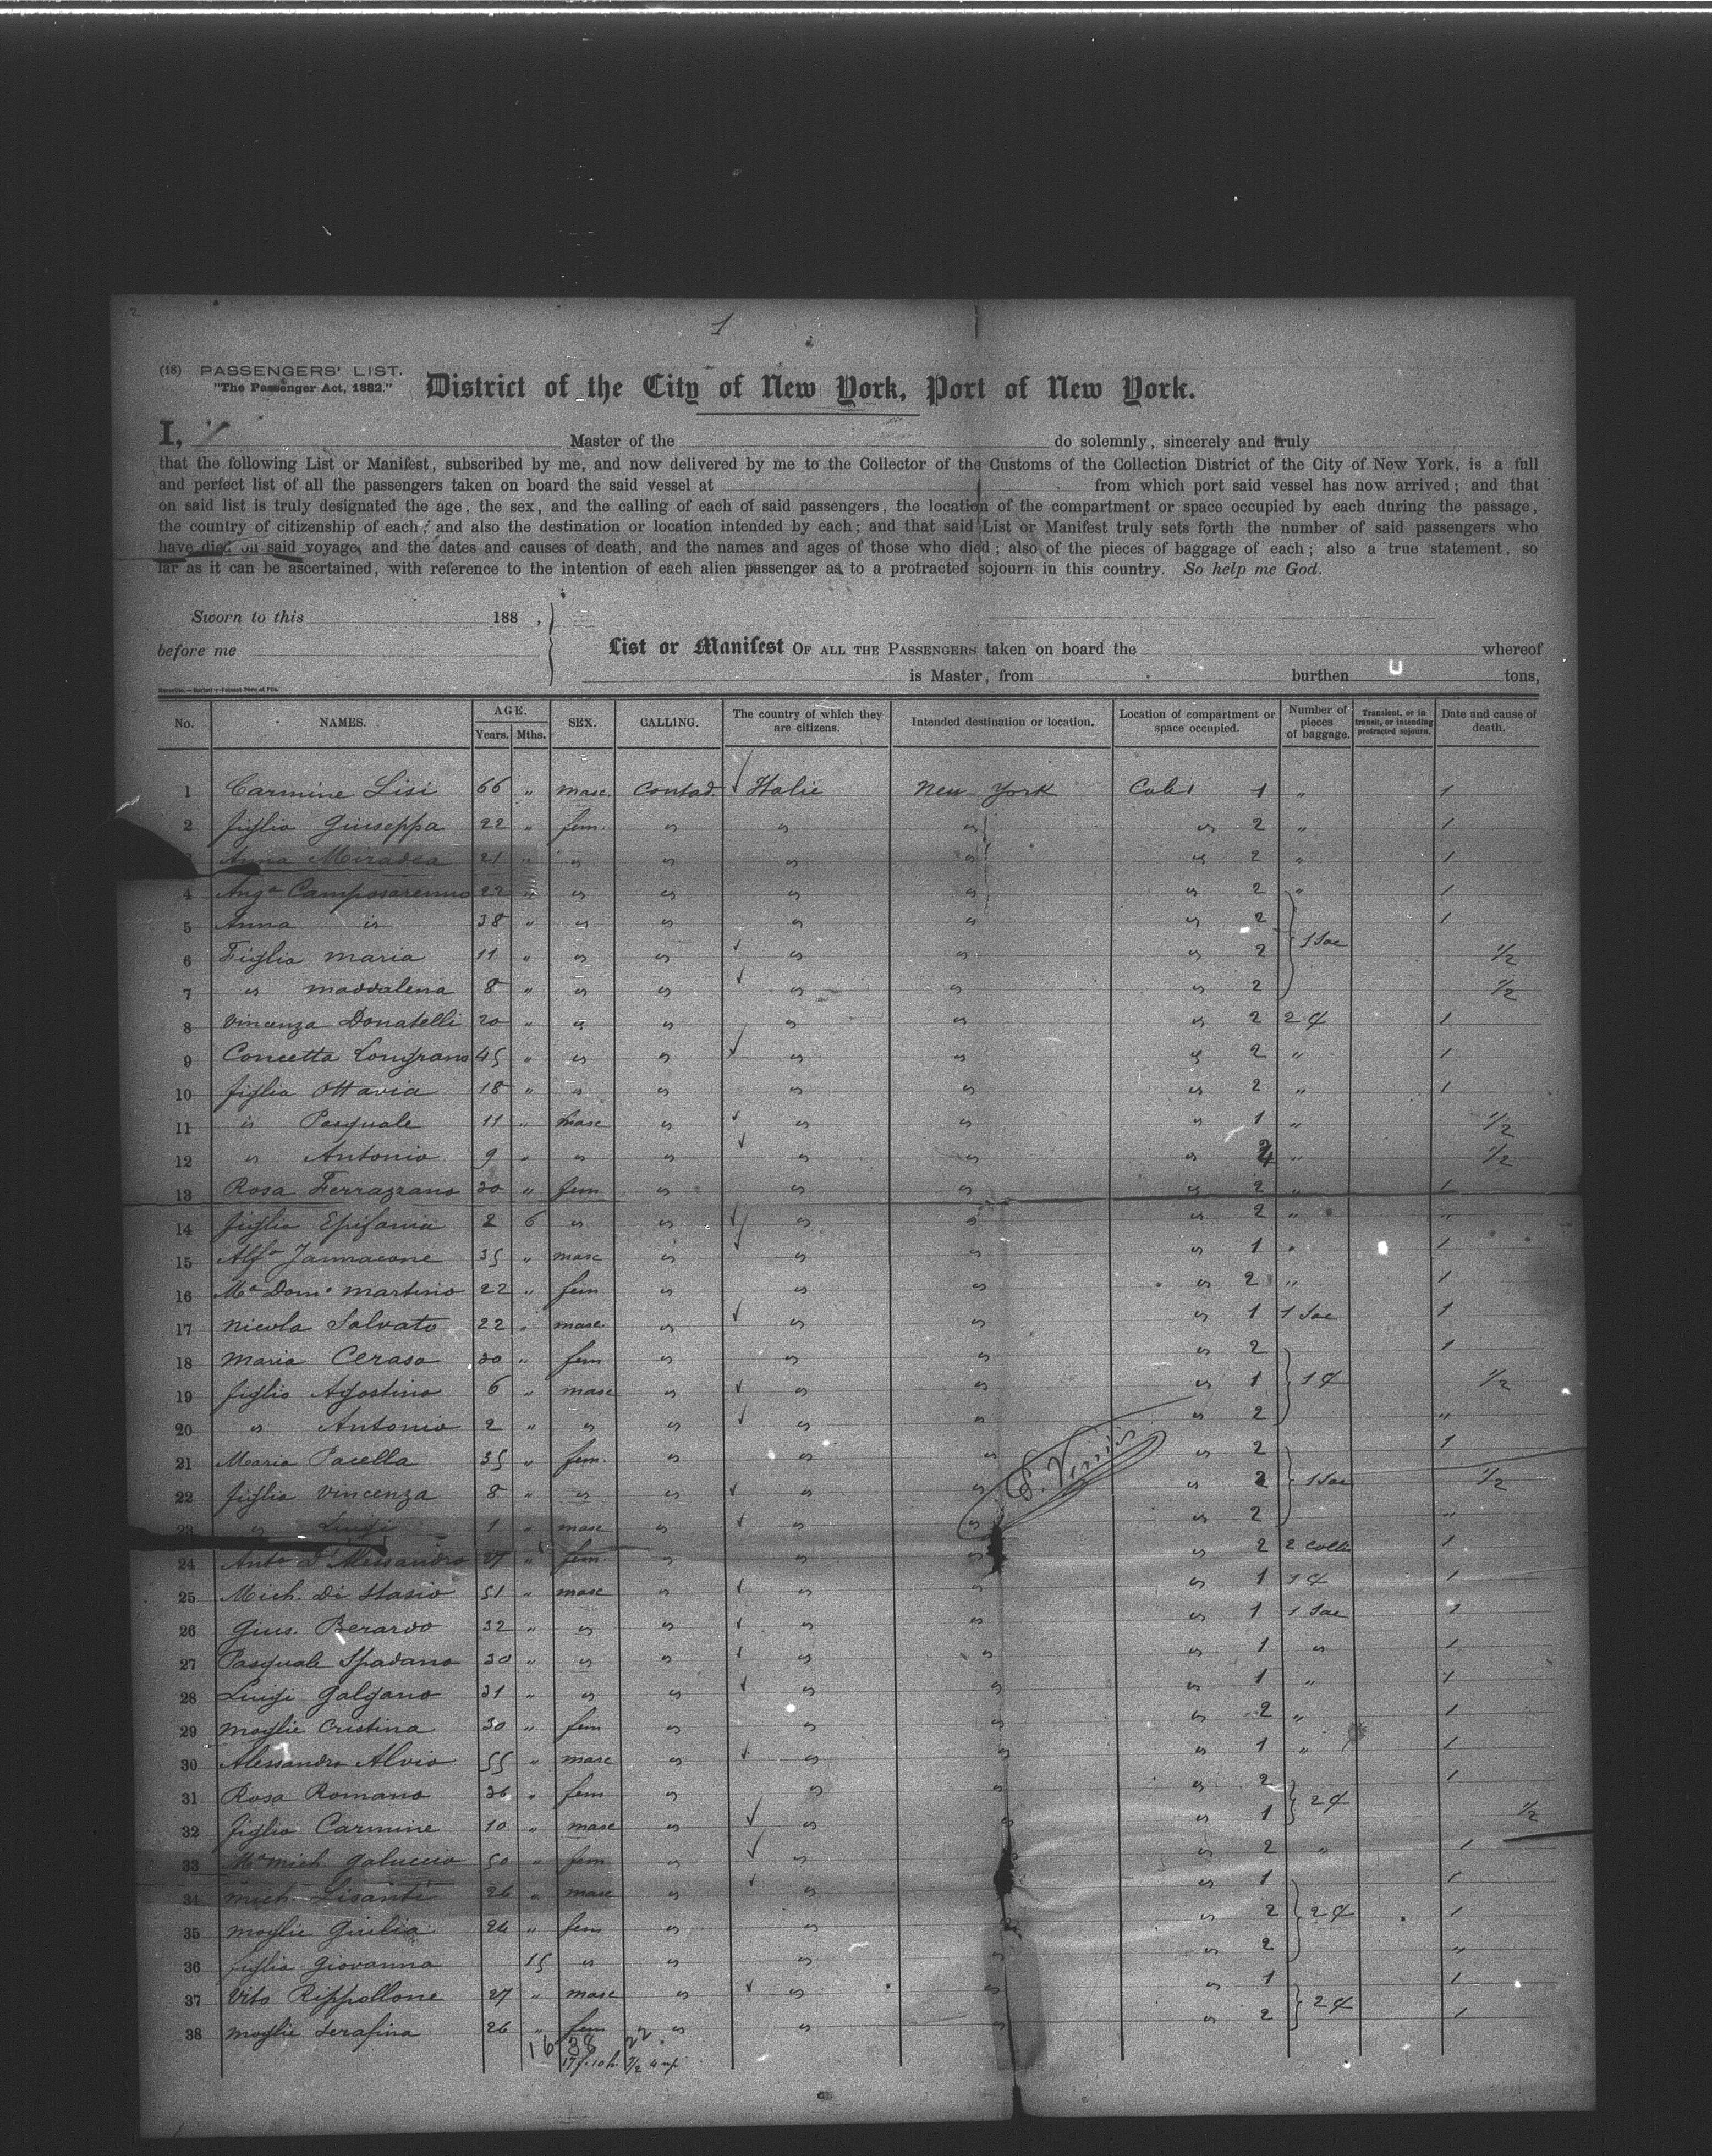 2
1
(18) PASSENGERS' LIST.
"The Passenger Act, 1882."
District of the City of New York, Port of New York.
I, Master of the do solemnly, sincerely and truly
that the following List or Manifest, subscribed by me, and now delivered by me to the Collector of the Customs of the Collection District of the City of New York, is a full
and perfect list of all the passengers taken on board the said vessel at from which port said vessel has now arrived; and that
on said list is truly designated the age, the sex, and the calling of each of said passengers, the location of the compartment or space occupied by each during the passage,
the country of citizenship of each; and also the destination or location intended by each; and that said List or Manifest truly sets forth the number of said passengers who
have died on said voyage, and the dates and causes of death, and the names and ages of those who died; also of the pieces of baggage of each; also a true statement, so
far as it can be ascertained, with reference to the intention of each alien passenger as to a protracted sojourn in this country. So help me God.
Sworn to this 188 ,
before me
List or Manifest OF ALL THE PASSENGERS taken on board the whereof
is Master, from burthen tons,
No. NAMES. AGE. Years. Mths. SEX. CALLING. The country of which they are citizens. Intended destination or location. Location of compartment or space occupied. Number of pieces of baggage. Transient, or in transit, or intending protracted sojourn. Date and cause of death.
1 Carmine Lisi 66 " masc. Contad. Italie New York Cab. 1 " 1
2 figlia Giuseppa 22 " fem. " " " " 2 " 1
3 Anna 21 " " " " " " 2 " 1
4 Anga 22 " " " " " " 2 " 1
5 Anna is 38 " " " " " " 2 1
6 Figlia Maria 11 " " " " " " 2 1 Sac 1/2
7 " Maddalena 8 " " " " " " 2 1/2
8 Vincenza Donatelli 20 " " " " " " 2 2 C 1
9 Concetta Longrano 45 " " " " " " 2 " 1
10 figlia Ottavia 18 " " " " " " 2 " 1
11 is Pasquale 11 " masc " " " " 1 " 1/2
12 " Antonio 9 " " " " " " 2 " 1/2
13 Rosa Ferrazzano 30 " fem " " " " 2 " 1
14 figlia Epifania 2 6 " " " " " 2 " "
15 Alfo Jannacone 35 " masc " " " " 1 " 1
16 Ma Doma Martino 22 " fem " " " " 2 " 1
17 Nicola Salvato 22 " masc. " " " " 1 1 Sac 1
18 Maria Ceraso 30 " fem " " " " 2 1
19 figlio Agostino 6 " masc " " " " 1 1 C 1/2
20 " Antonio 2 " " " " " " 2 "
21 Maria Pacella 35 " fem. " " " " 2 1
22 figlia Vincenza 8 " " " " " " 2 1 Sac 1/2
23 " Luigi 1 " masc " " " " 2 "
24 Anta D'Alessandro 27 " fem. " " " " 2 2 Colli 1
25 Mich. Di Stasio 51 " masc " " " " 1 1 C 1
26 Gius. Berardo 32 " " " " " " 1 1 Sac 1
27 Pasquale Spadano 30 " " " " " " 1 " 1
28 Luigi Galgano 31 " " " " " " 1 " 1
29 Moglie Cristina 30 " fem " " " " 2 " 1
30 Alessandro Alvio 55 " masc " " " " 1 " 1
31 Rosa Romano 36 " fem " " " " 2 1
32 figlio Carmine 10 " masc " " " " 1 2 C 1/2
33 Ma Mich. Galuccio 50 " fem " " " " 2 " 1
34 Mich. Lisanti 26 " masc " " " " 1 1
35 Moglie Giulia 24 " fem " " " " 2 2 C 1
36 figlia Giovanna 15 " " " " " 2 "
37 Vito Rippollone 27 " masc " " " " 1 1
38 Moglie Serafina 26 " fem " " " " 2 2 C 1
16 38 22